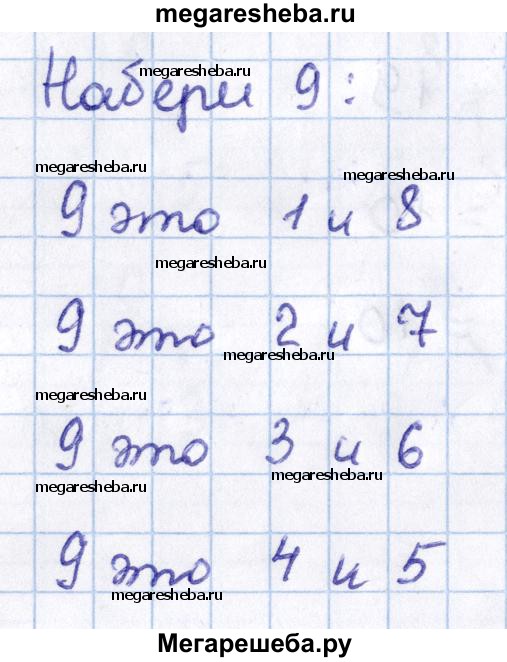 megaresheba.ru
Набери 9:
megaresheba.ru
megaresheba.ru
megaresheba.ru
9 это 1 и 8
megaresheba.ru
9 это 2 и 7
megaresheba.ru
megaresheba.ru
9 это 3 и 6
megaresheba.ru
megaresheba.ru
9 это 4 и 5
megaresheba.ru
Мегарешеба.ру